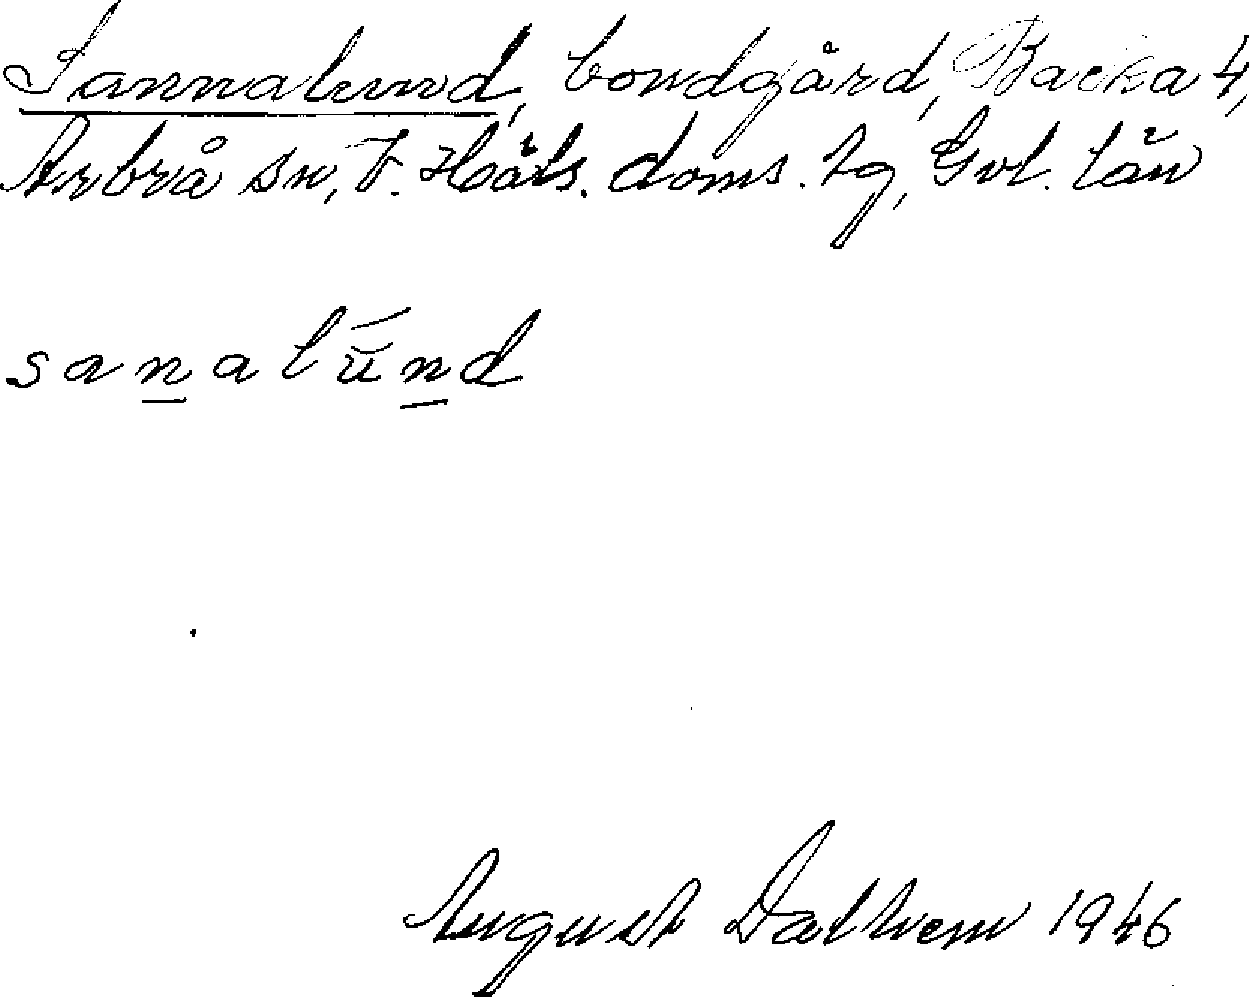 Sannalund, bondgård, Backa 4,
Arbrå sn, V. Häls. doms. tg, Gvl. län
sanalund
August Dalhem 1946